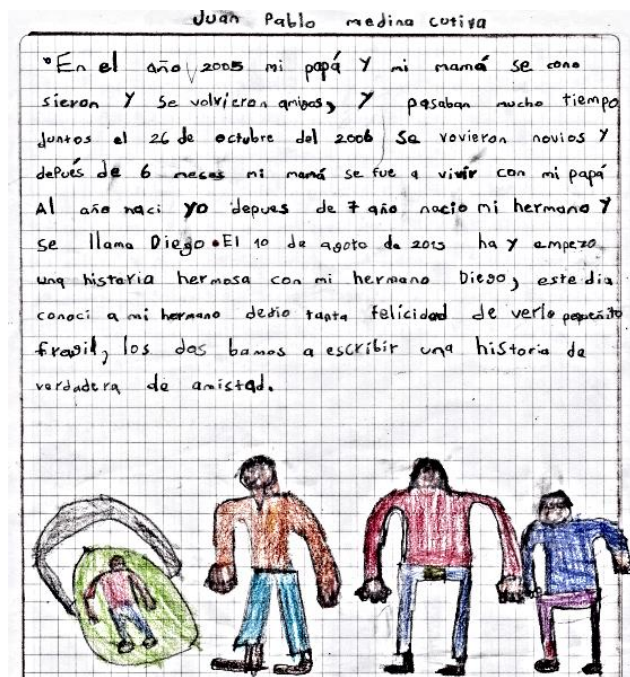 Juan Pablo medina cutiva
"En el año 2005 mi papá Y mi mamá se cono
sieron Y se volvieron amigos, Y pasaban mucho tiempo
juntos el 26 de octubre del 2006 se vovieron novios Y
depués de 6 meses mi mamá se fue a vivir con mi papá
Al año naci yo depues de 7 año nacio mi hermano Y
se llama Diego. El 10 de agoto de 2015 ha Y empezo
una historia hermosa con mi hermano Diego, este dia
conoci a mi hermano dedio tanta felicidad de verlo pequeñito
fragil, los dos bamos a escribir una historia de
verdadera de amistad.